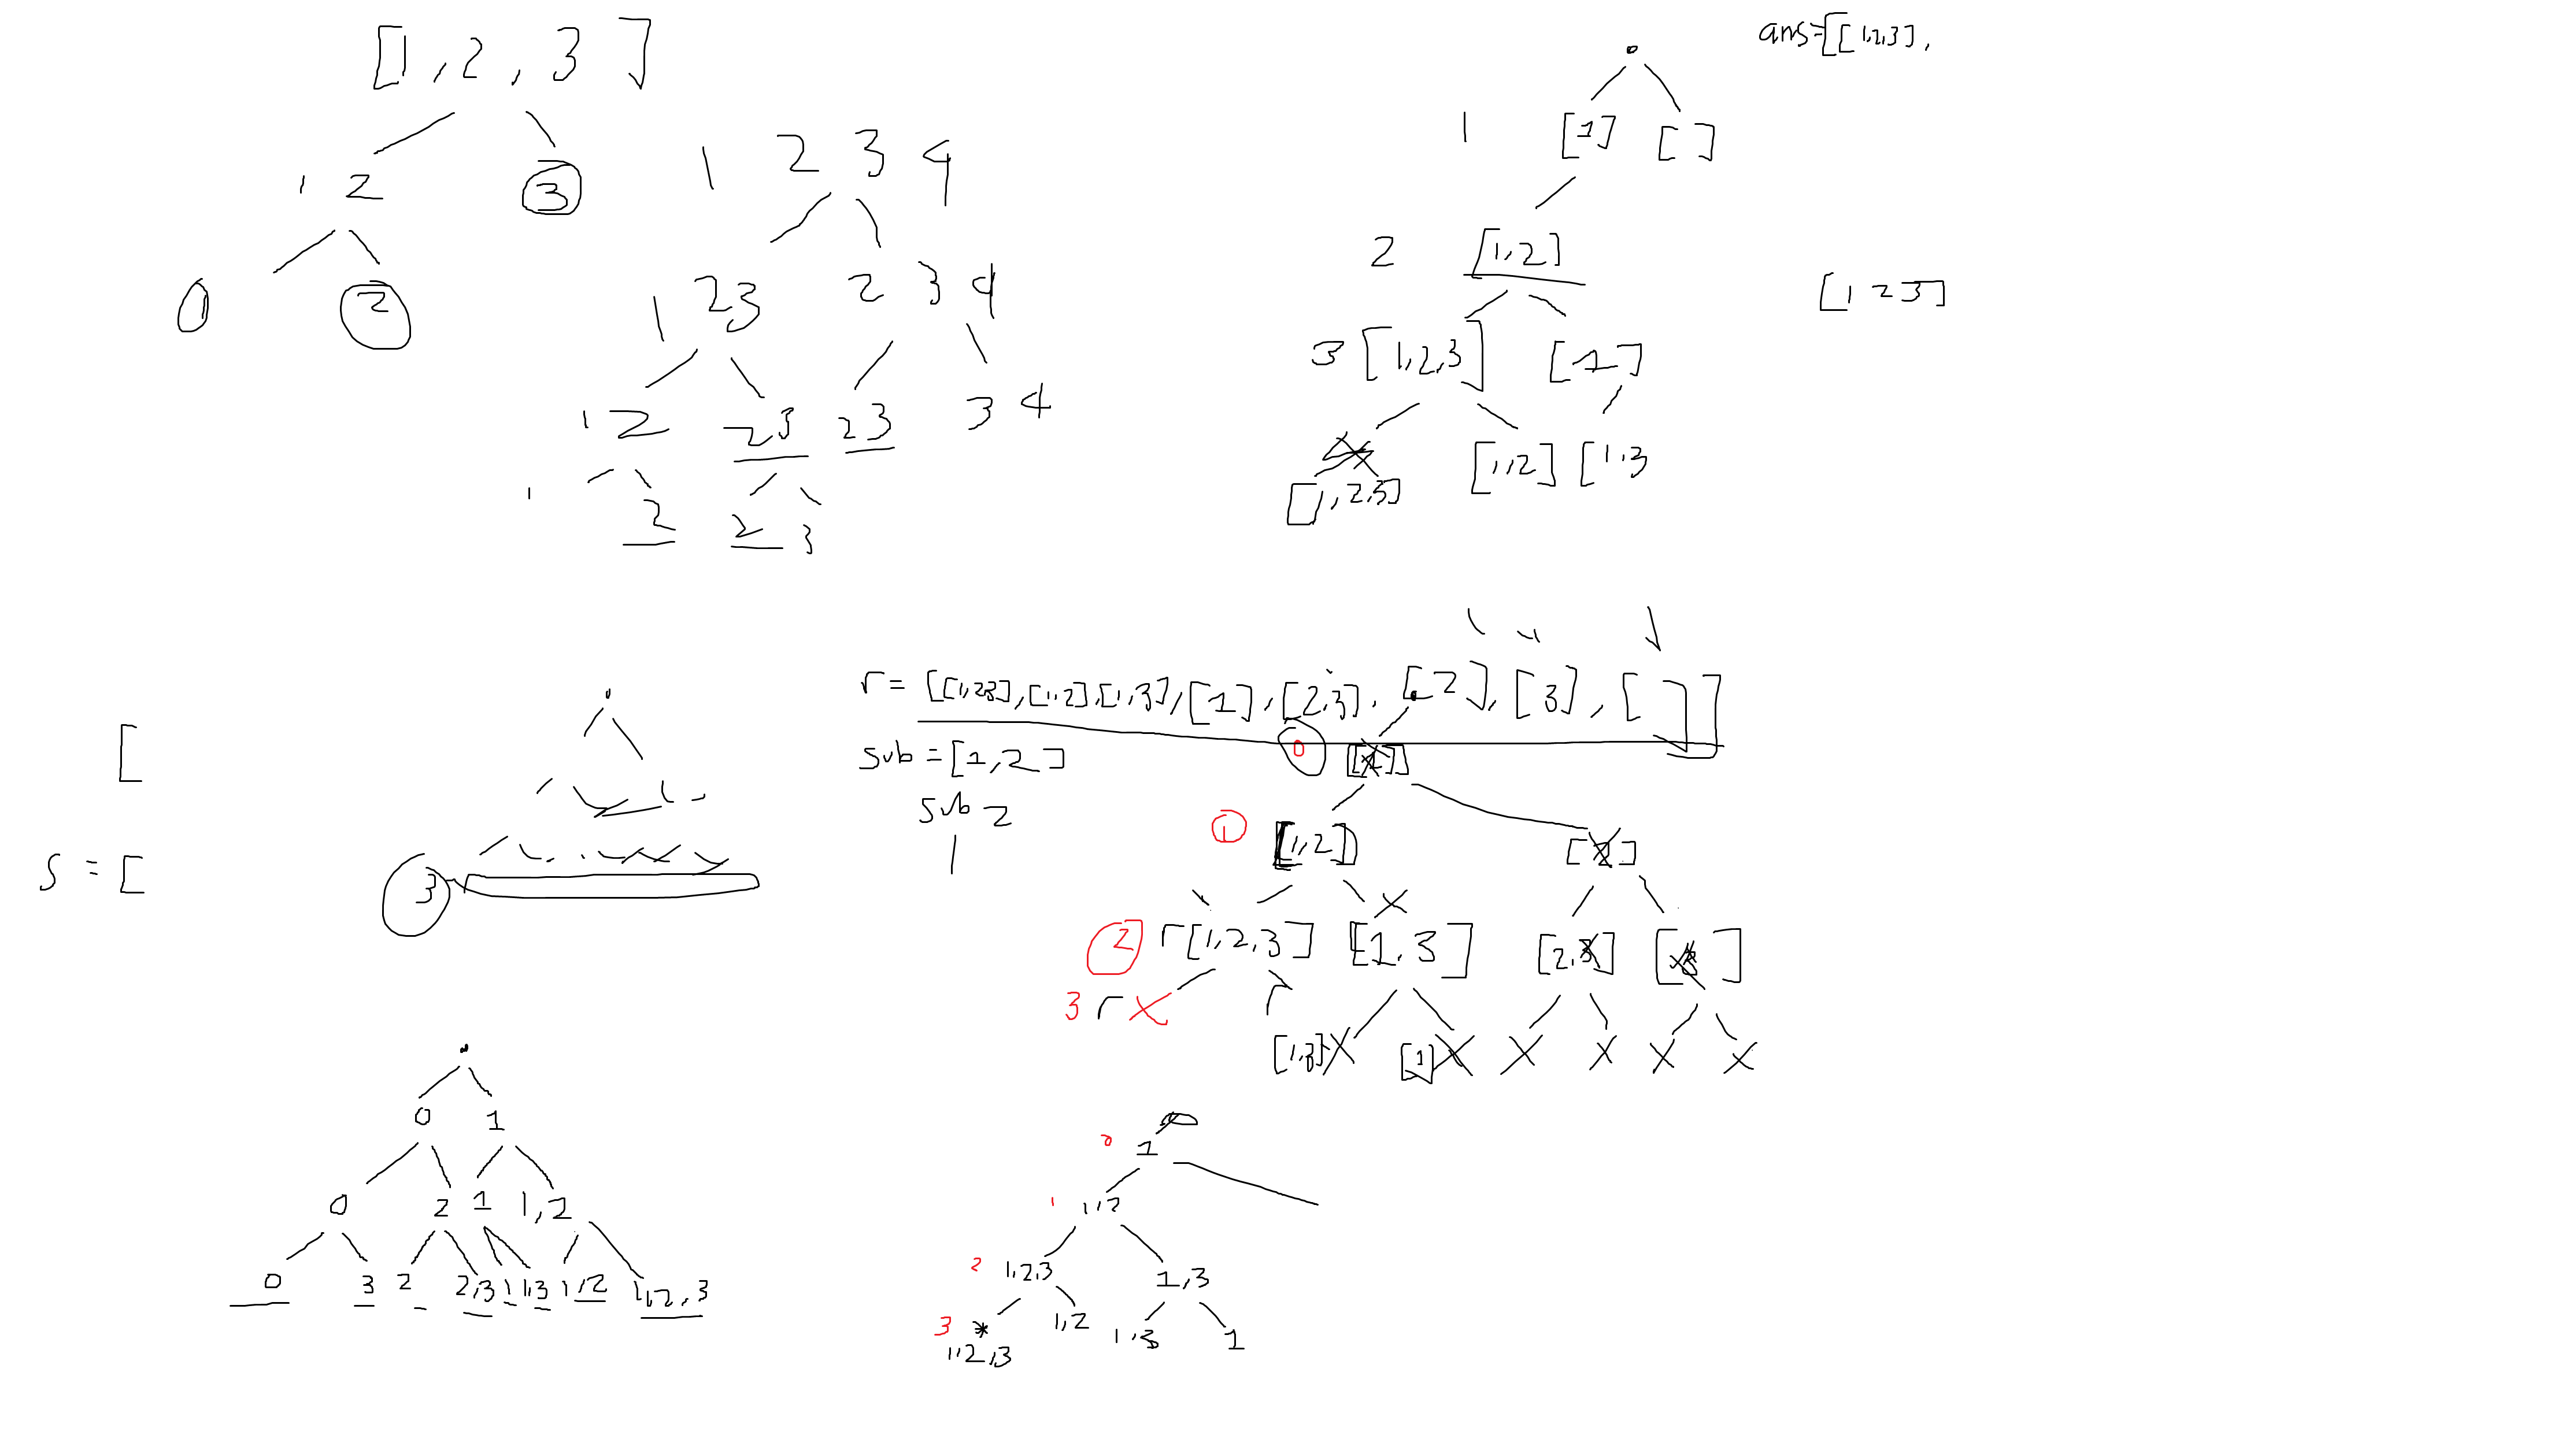 [1, 2, 3]
1 2
3
0
2
1 2 3 4
1 2 3
2 3 4
1 2
2 3
2 3
3 4
1
2
2
3
ans=[[1,2,3],
1
[1]
[ ]
2
[1,2]
[1 2 3]
3
[1,2,3]
[1]
[1,2,3]
[1,2]
[1,3
r= [[1,2,3],[1,2],[1,3],[1],[2,3],[2],[3],[ ]]
sub =[1,2]
sub 2
1
[
s = [
3
0
1
[1,2]
[2]
2
r[1,2,3]
[1,3]
[2,3]
[3]
3 r X
r
[1,3] X
[1] X
X X X X
0 1
0 2 1 1,2
0 3 2 2,3 1 1,3 1,2 1,2,3
0 1
1 1,2
2 1,2,3 1,3
3 * 1,2 1,3 1
1,2,3